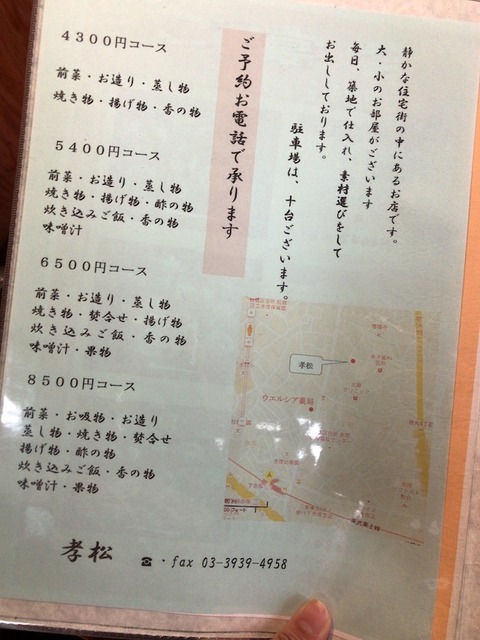 静かな住宅街の中にあるお店です。
大・小のお部屋がございます
毎日、築地で仕入れ、素材選びをして
お出ししております。
駐車場は、十台ございます。
ご予約お電話で承ります
４３００円コース
前菜・お造り・蒸し物
焼き物・揚げ物・香の物
５４００円コース
前菜・お造り・蒸し物
焼き物・揚げ物・酢の物
炊き込みご飯・香の物
味噌汁
６５００円コース
前菜・お造り・蒸し物
焼き物・焚合せ・揚げ物
炊き込みご飯・香の物
味噌汁・果物
８５００円コース
前菜・お吸物・お造り
蒸し物・焼き物・焚合せ
揚げ物・酢の物
炊き込みご飯・香の物
味噌汁・果物
孝松
ウエルシア薬局
孝松
☎・fax 03-3939-4958